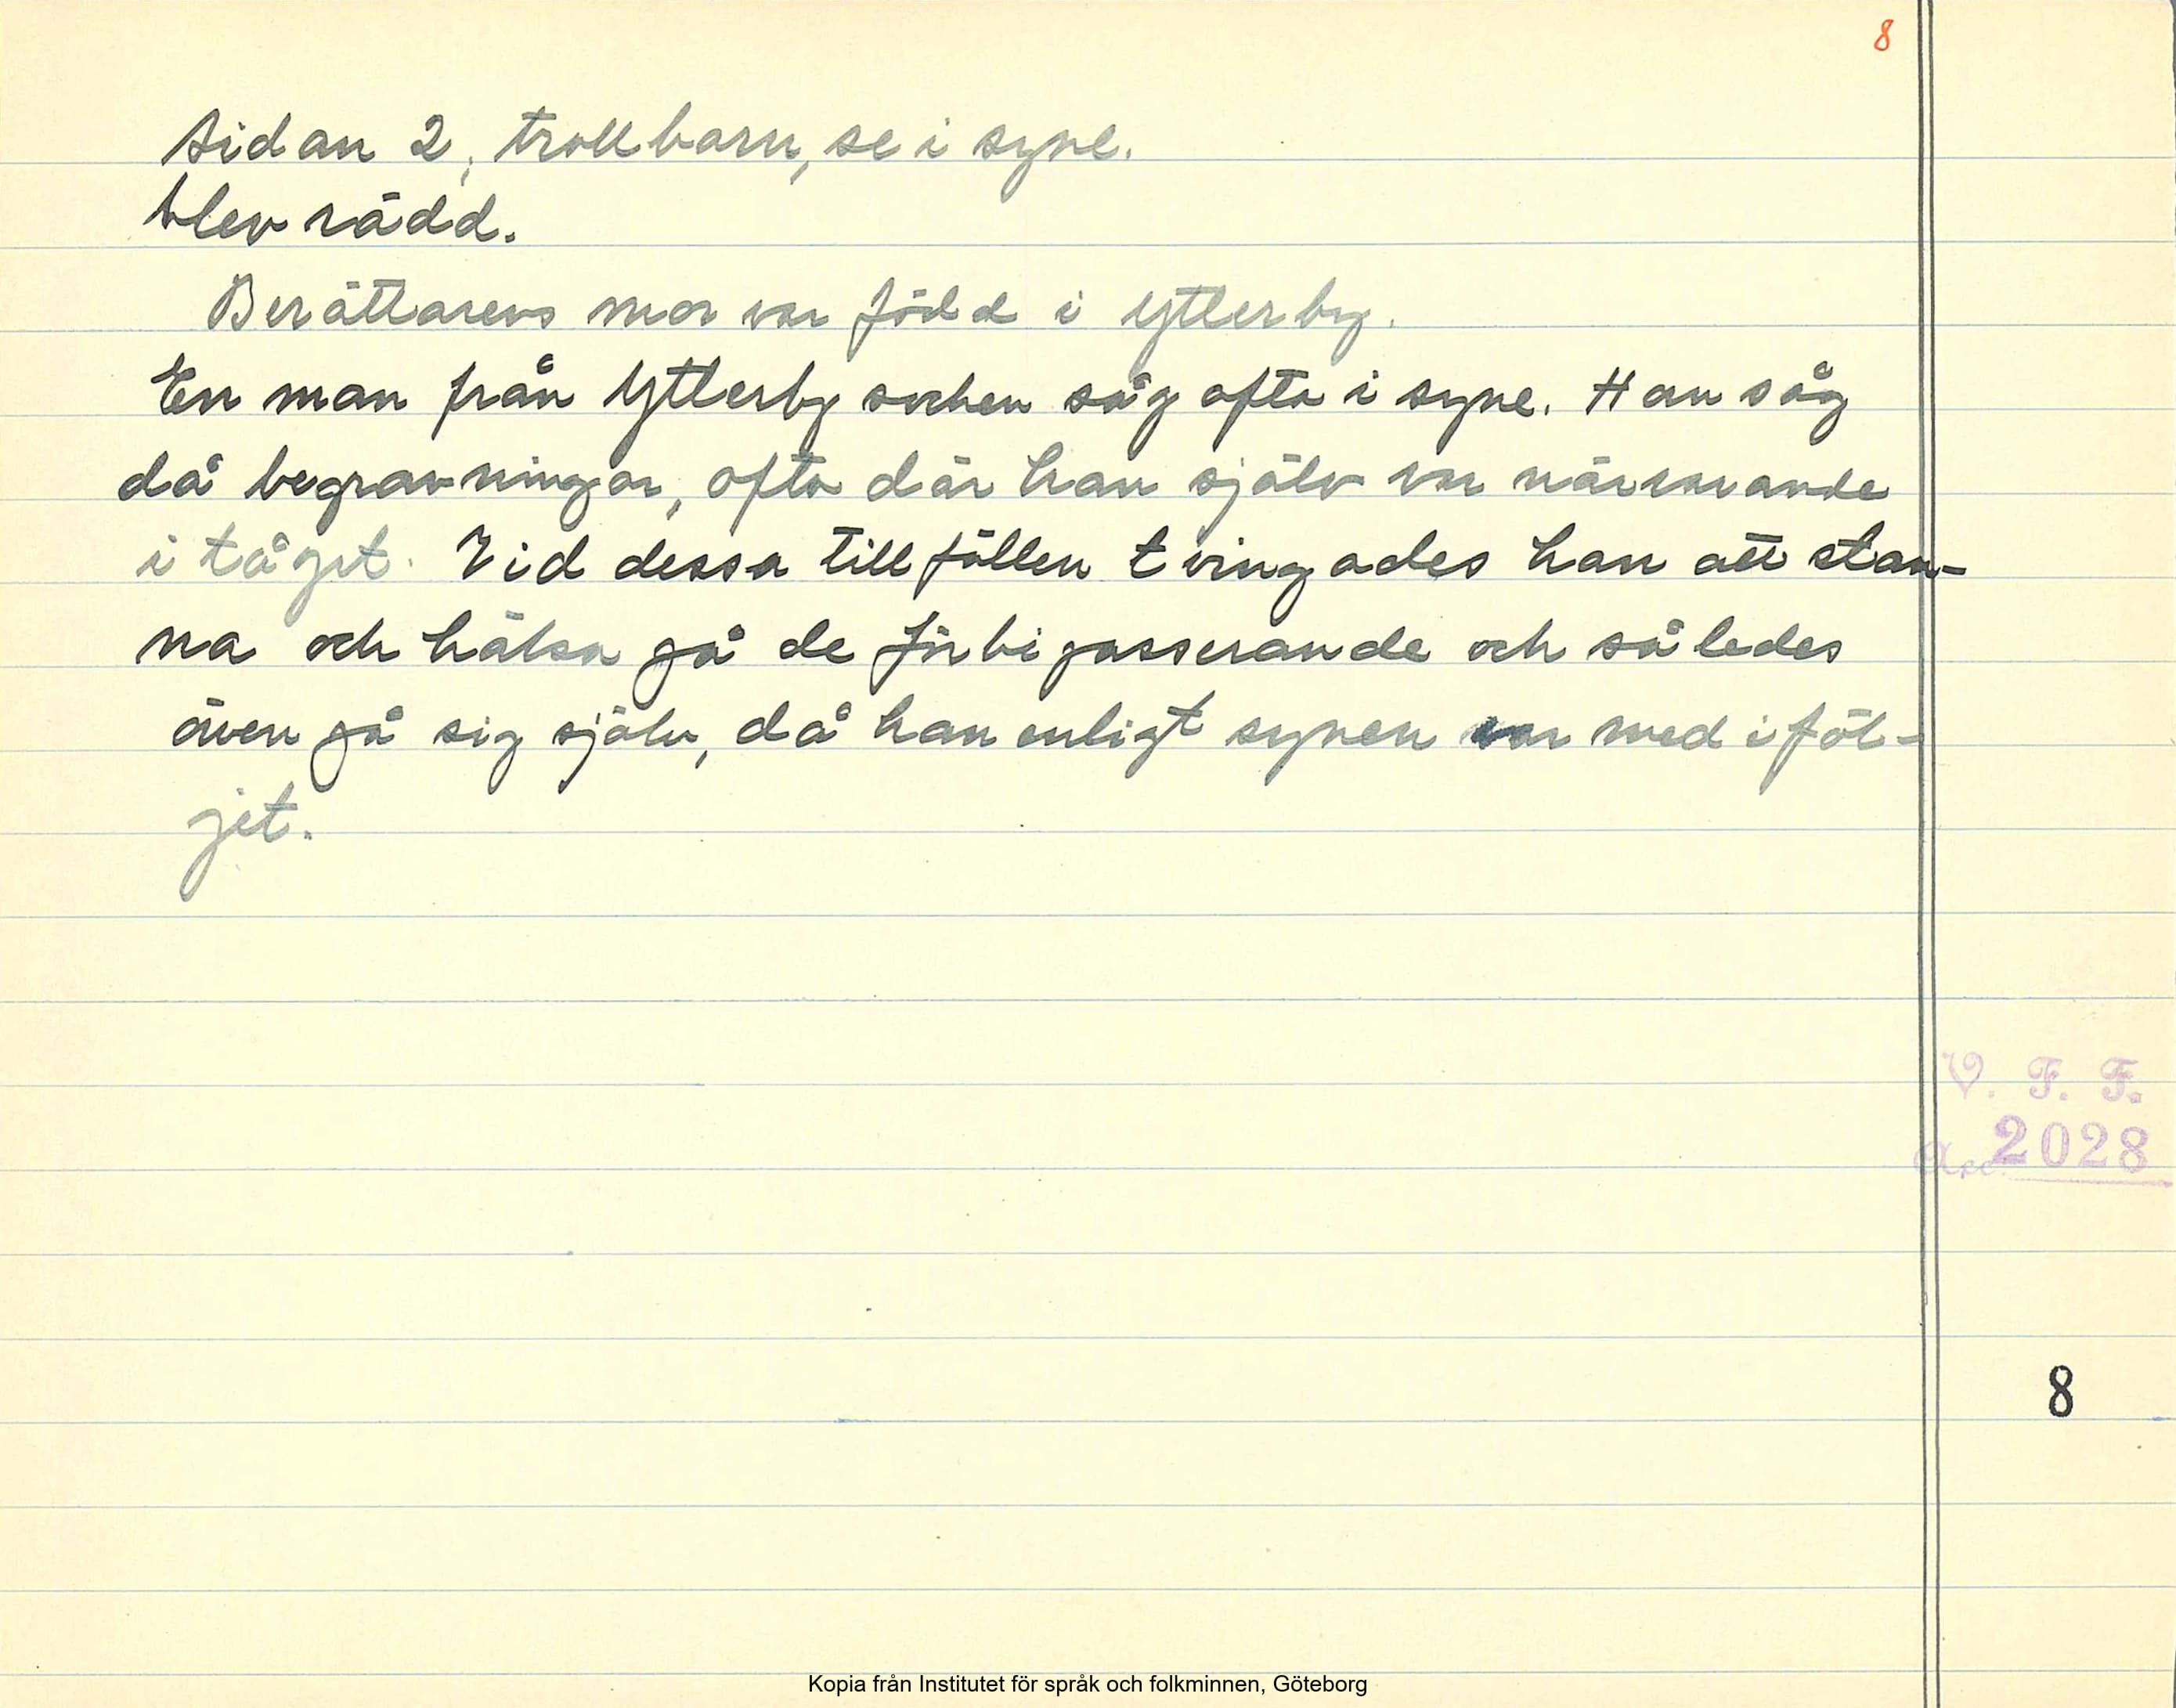 8
sidan 2, trollbarn, se i syne.
blev rädd.
Berättarens mor var född i Ytterby.
En man från Ytterby socken såg ofta i syne. Han såg
då begravningar, ofta där han själv var närvarande
i tåget. Vid dessa tillfällen tvingades han att stan-
na och hälsa på de förbipasserande och således
även på sig själv, då han enligt synen var med i föl-
jet.
V. F. F.
Acc. 2028
8
Kopia från Institutet för språk och folkminnen, Göteborg